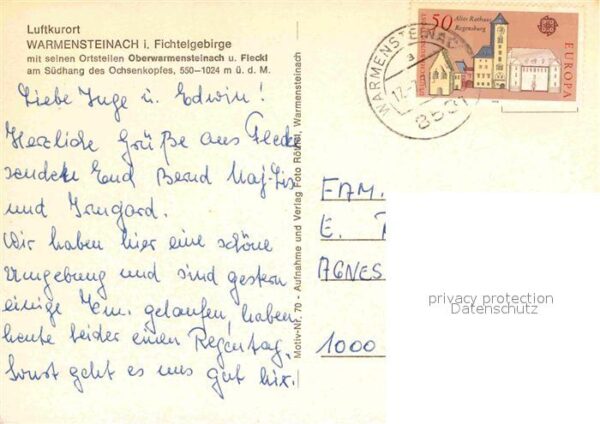 Luftkurort
WARMENSTEINACH i. Fichtelgebirge
mit seinen Ortsteilen Oberwarmensteinach u. Fleckl
am Südhang des Ochsenkopfes, 550–1024 m ü. d. M.
Liebe Inge u. Edwin!
Herzliche Grüße aus Fleckl
senden Euch Bernd
und Irmgard.
Wir haben hier eine schöne
Umgebung und sind gestern
einige km. gelaufen, haben
heute leider einen Regentag,
sonst geht es uns gut hier.
Motiv-Nr. 70 - Aufnahme und Verlag Foto Röthel, Warmensteinach
DEUTSCHE BUNDESPOST
50
Altes Rathaus
Regensburg
EUROPA
WARMENSTEINAC
a
8531
FAM.
E.
AGNES
1000
privacy protection
Datenschutz